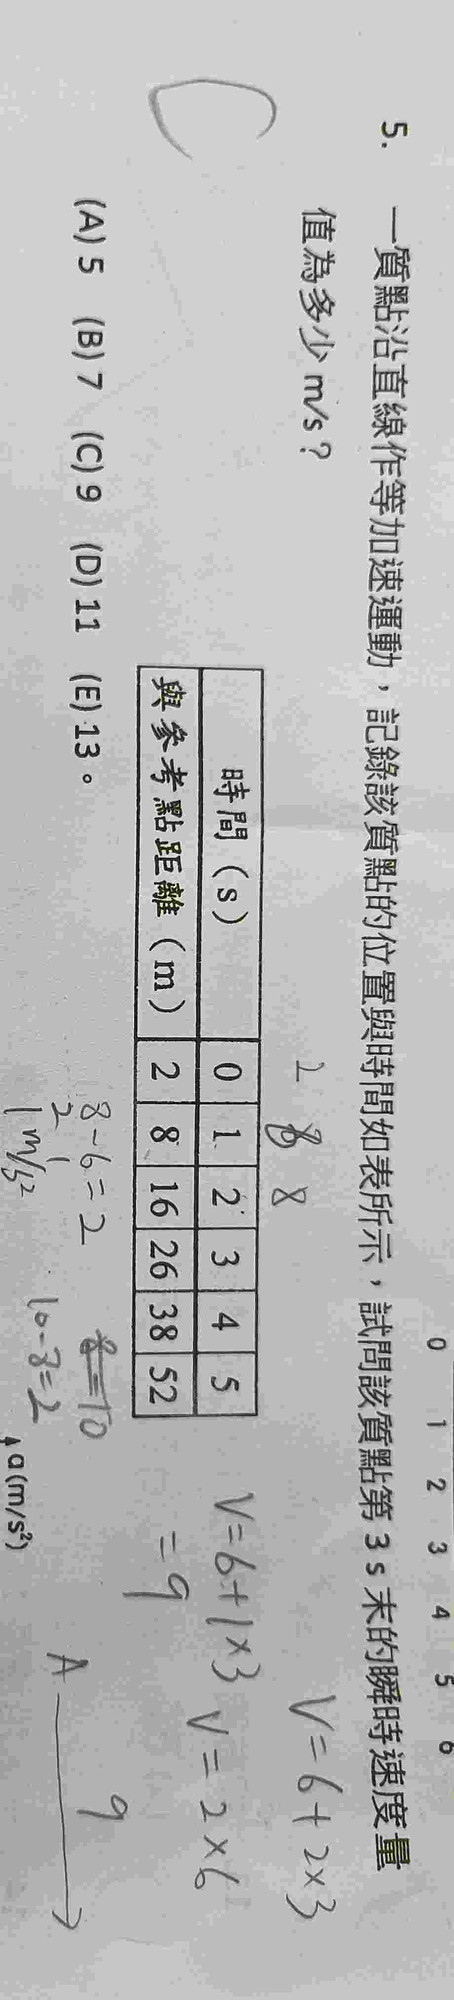 0 1 2 3 4 5 6
5. 一質點沿直線作等加速運動，記錄該質點的位置與時間如表所示，試問該質點第 3 s 末的瞬時速度量
值為多少 m/s？
2 8 8
V=6+2×3
時間（s） 0 1 2 3 4 5
與參考點距離（m） 2 8 16 26 38 52
V=6+1×3
=9
V=2×6
C
(A) 5 (B) 7 (C) 9 (D) 11 (E) 13。
8-6=2
10-8=2
1 m/s²
a(m/s²)
A
9